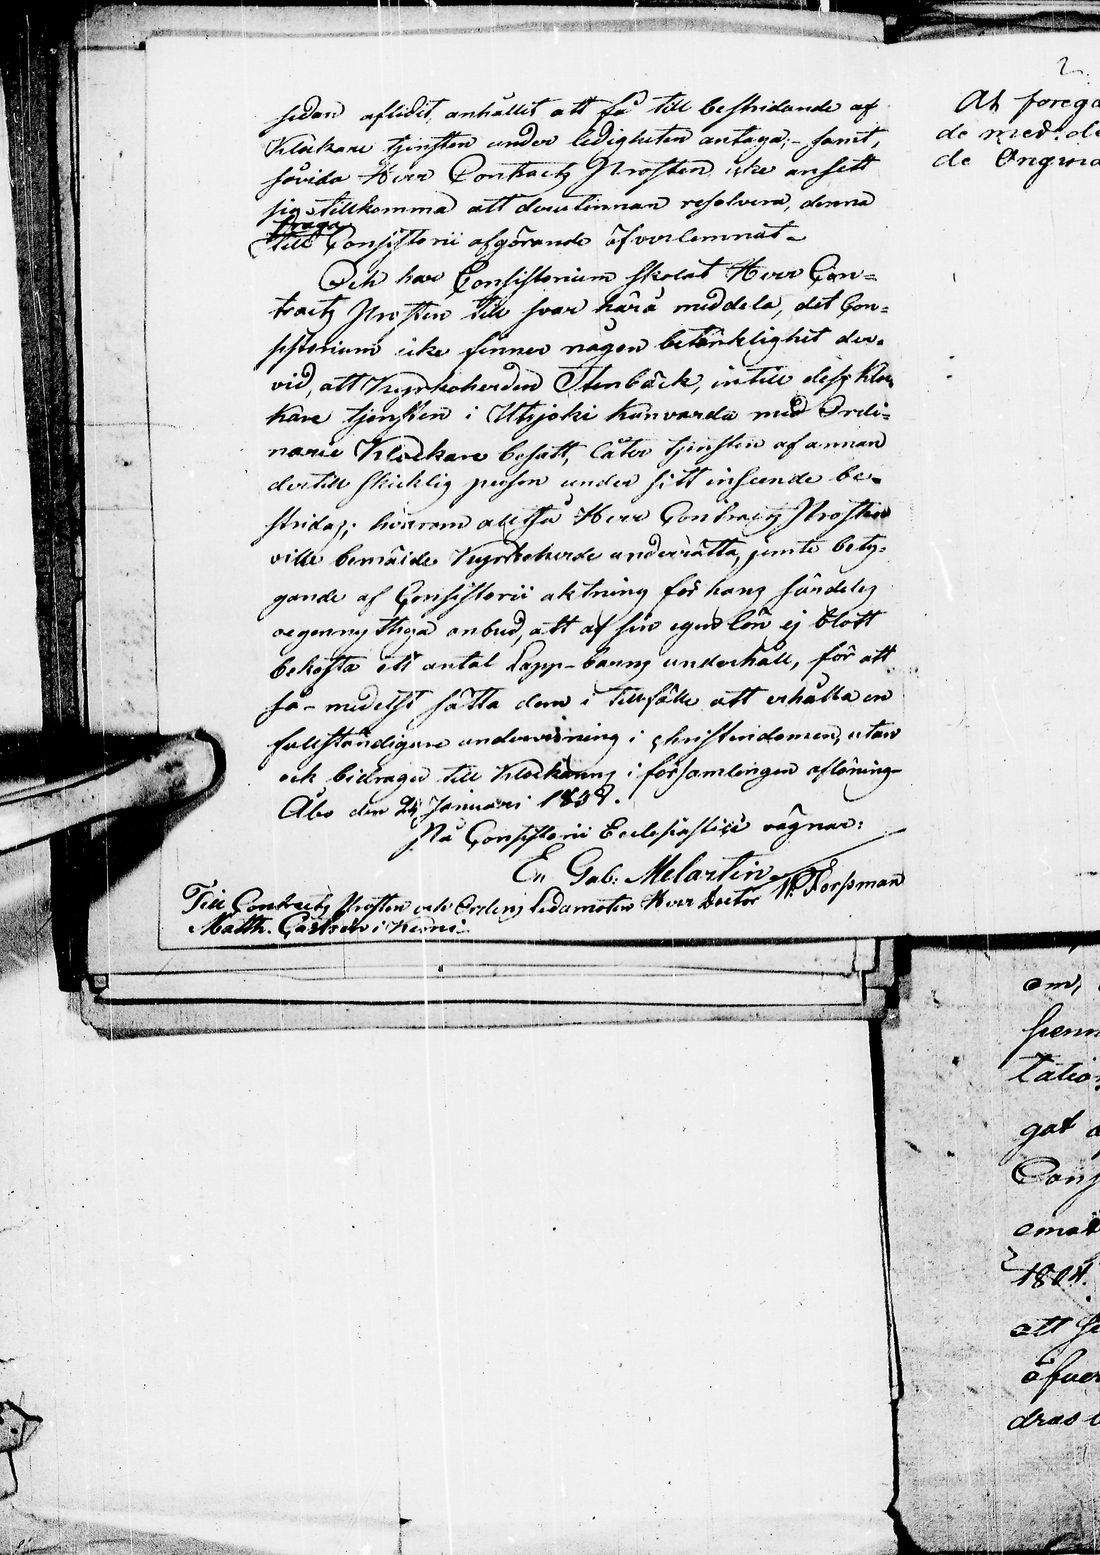 sedan aflidit, anhållit att få till bestridande af
Klockare tjensten under ledigheten antaga; – samt,
såvida Herr Contracts Prosten icke ansett
sig tillkomma att derutinnan resolvera, denna
fråga
till Consistorii afgörande öfverlemnat –
Och har Consistorium skolat Herr Con=
tracts Prosten till svar härå meddela, det Con=
sistorium icke finner någon betänklighet der=
vid, att Kyrkoherden Stenbäck, intill dess Kloc
kare tjensten i Utsjoki kan varda med Ordi=
narie Klockare besatt, låter tjensten af annan
dertill skicklig person under sitt inseende be=
stridas; hvarom alltså Herr Contracts Prosten
ville bemälde Kyrkoherde underrätta, jemte bety=
gande af Consistorii aktning för hans särdeles
oegennyttiga anbud, att af sin egen lön ej blott
bekosta ett antal Lapp-barns underhåll, för att
så-medelst sätta dem i tillfälle att erhålla en
fullständigare undervisning i christendomen, utan
ock bidraga till Klockarens i församlingen aflöning –
Åbo den 24 Januari 1838.
På Consistorii Ecclesiastici vägnar:
Er. Gab. Melartin
W. Forssman
Till Contracts Prosten och Ordens Ledamoten Herr Doctor
Matth. Castrén i Kemi.
2.
At förega
de med. de
de Ongwa
om,
penn
tatio
gat
Cons
emot
1804.
att
äfven
dras